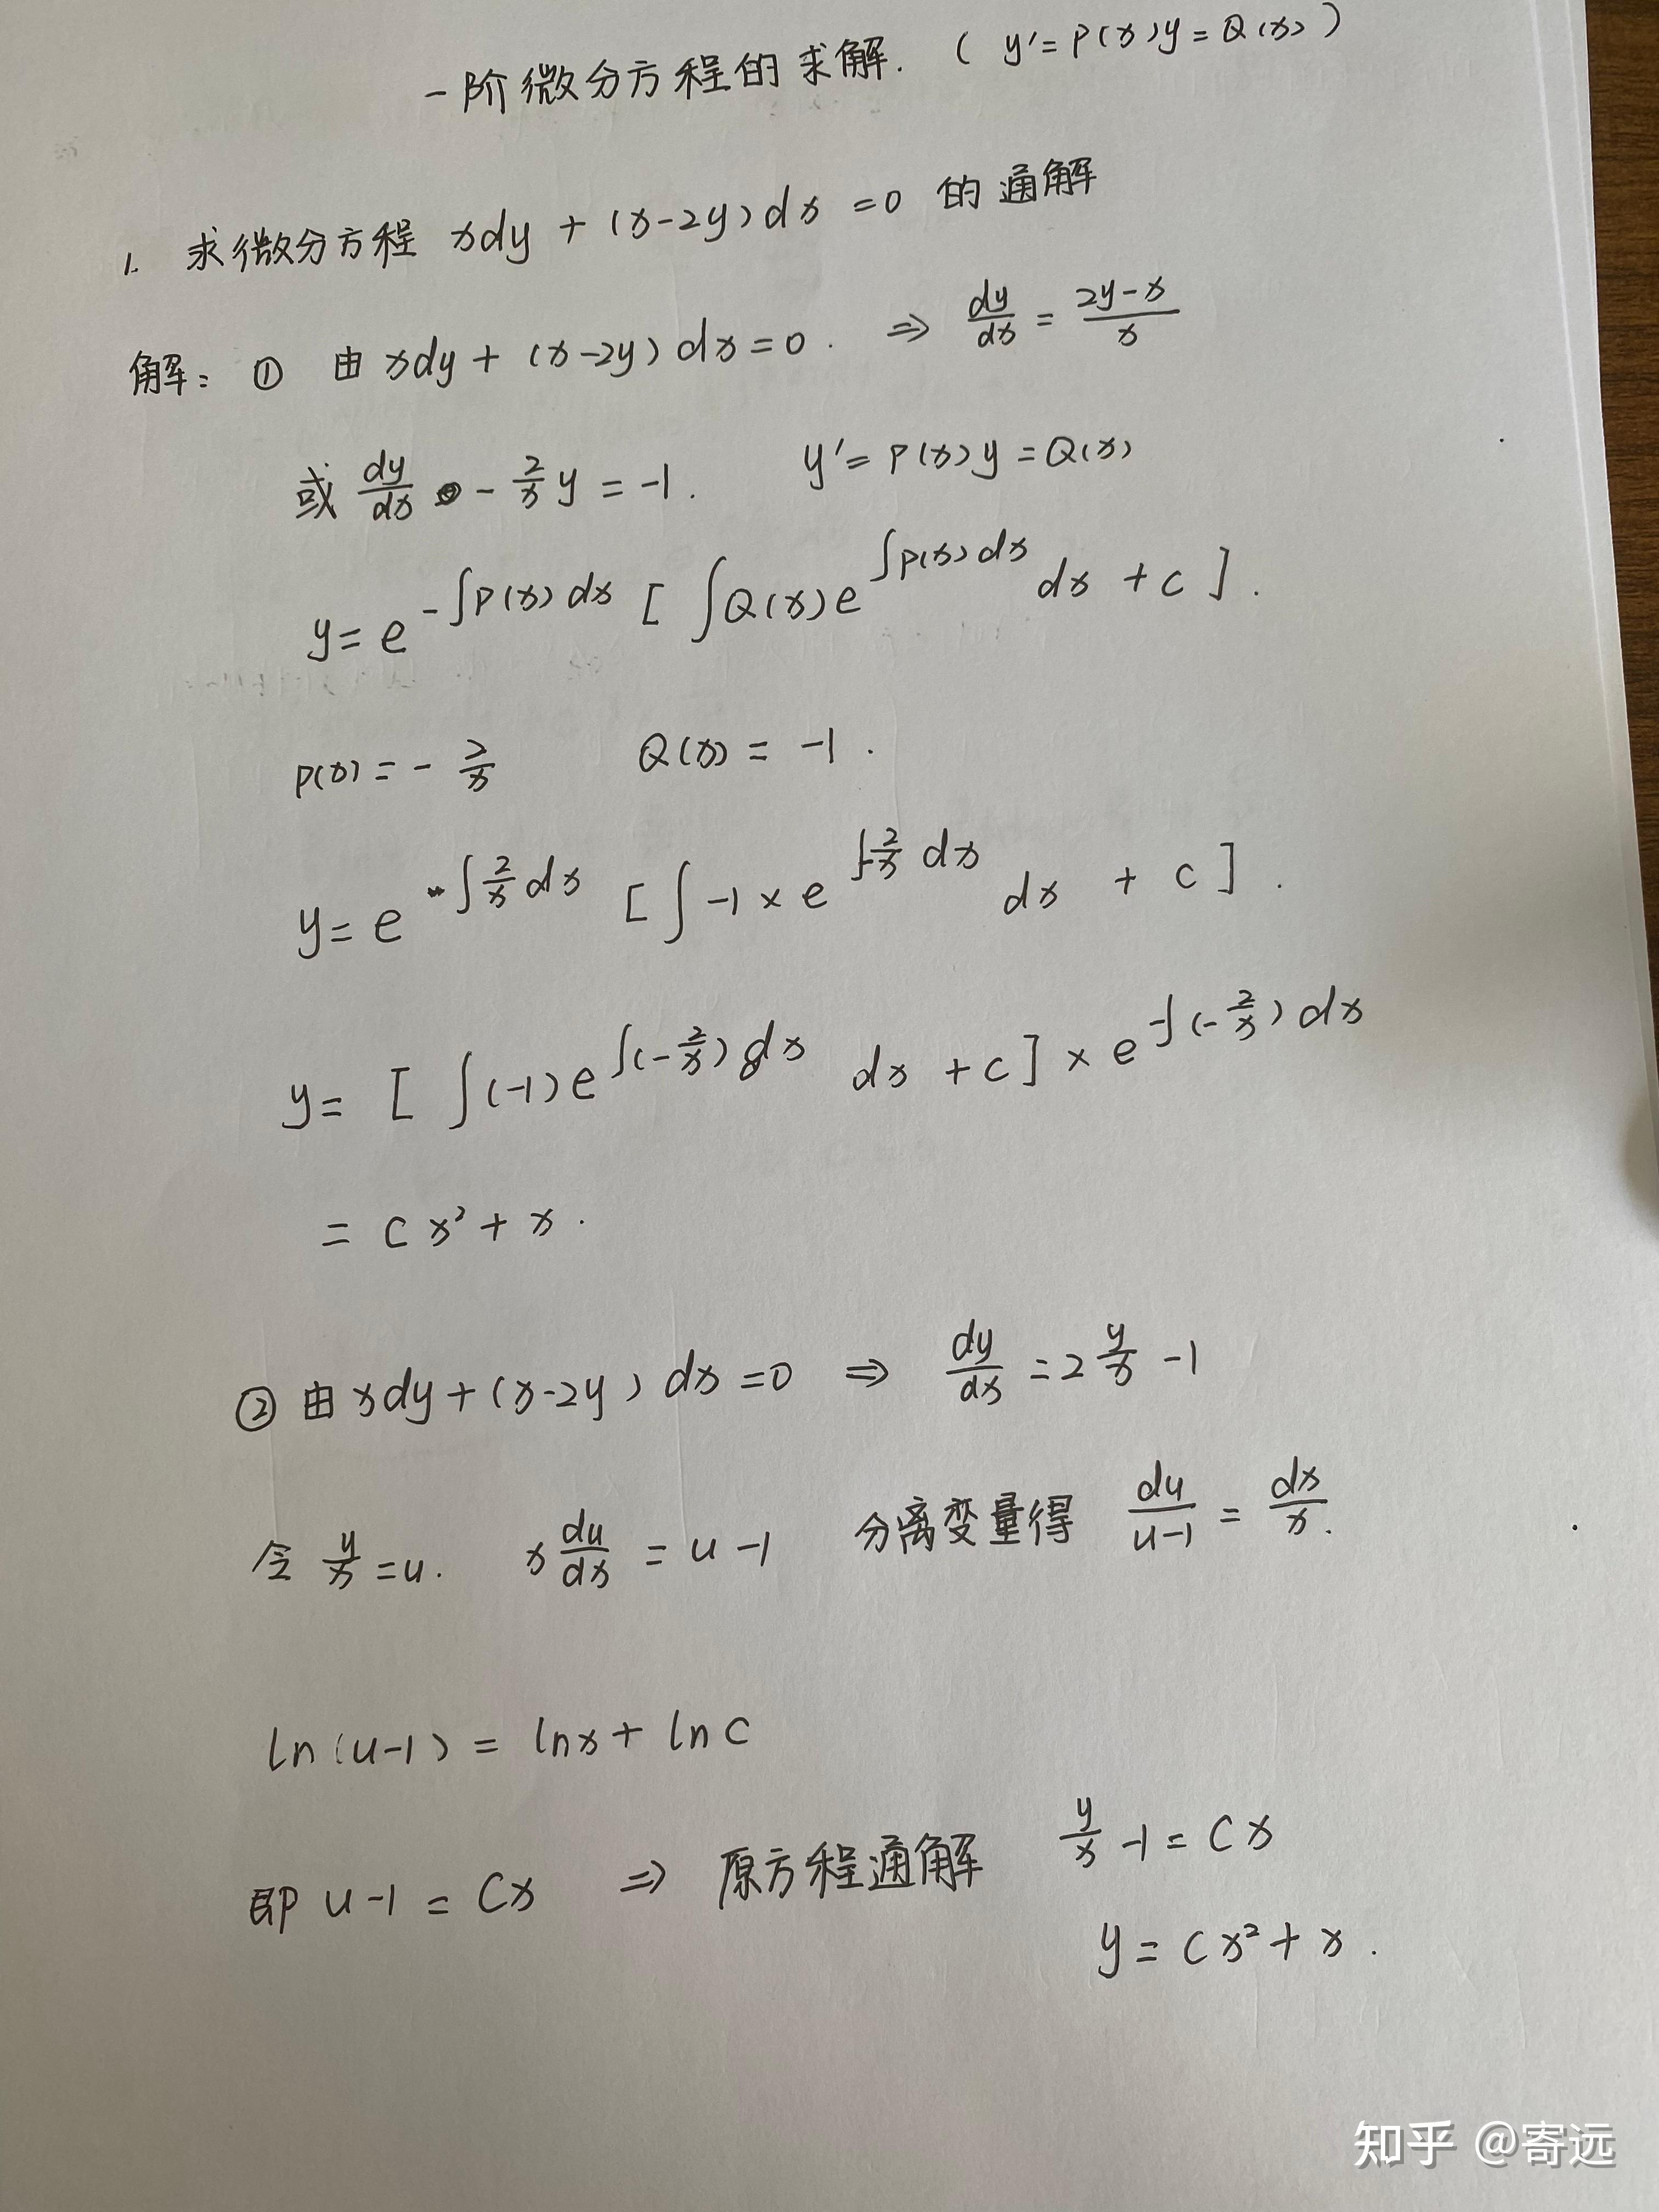 一阶微分方程的求解. ( y'=P(x)y=Q(x) )
1. 求微分方程 xdy + (x-2y)dx =0 的通解
解: ① 由 xdy + (x-2y)dx=0. ⇒ dy/dx = (2y-x)/x
或 dy/dx - 2/x y = -1. y'= P(x)y = Q(x)
y= e^{-∫P(x)dx} [ ∫Q(x)e^{∫P(x)dx} dx + c ].
P(x) = - 2/x Q(x) = -1.
y= e^{-∫2/x dx} [ ∫ -1 × e^{∫-2/x dx} dx + c ].
y= [ ∫(-1)e^{∫(-2/x)dx} dx + c ] × e^{-∫(-2/x)dx}
= Cx² + x.
② 由 xdy + (x-2y)dx =0 ⇒ dy/dx = 2 y/x -1
令 y/x = u. x du/dx = u-1 分离变量得 du/(u-1) = dx/x.
ln(u-1) = lnx + lnC
即 u-1 = Cx ⇒ 原方程通解 y/x -1 = Cx
y = Cx² + x.
知乎 @寄远